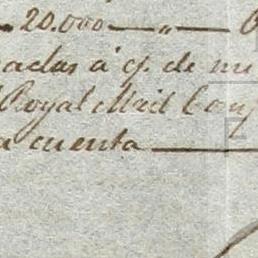 20.000 — " —
adas á cj. de mi
Royal Mail Comp
a cuenta